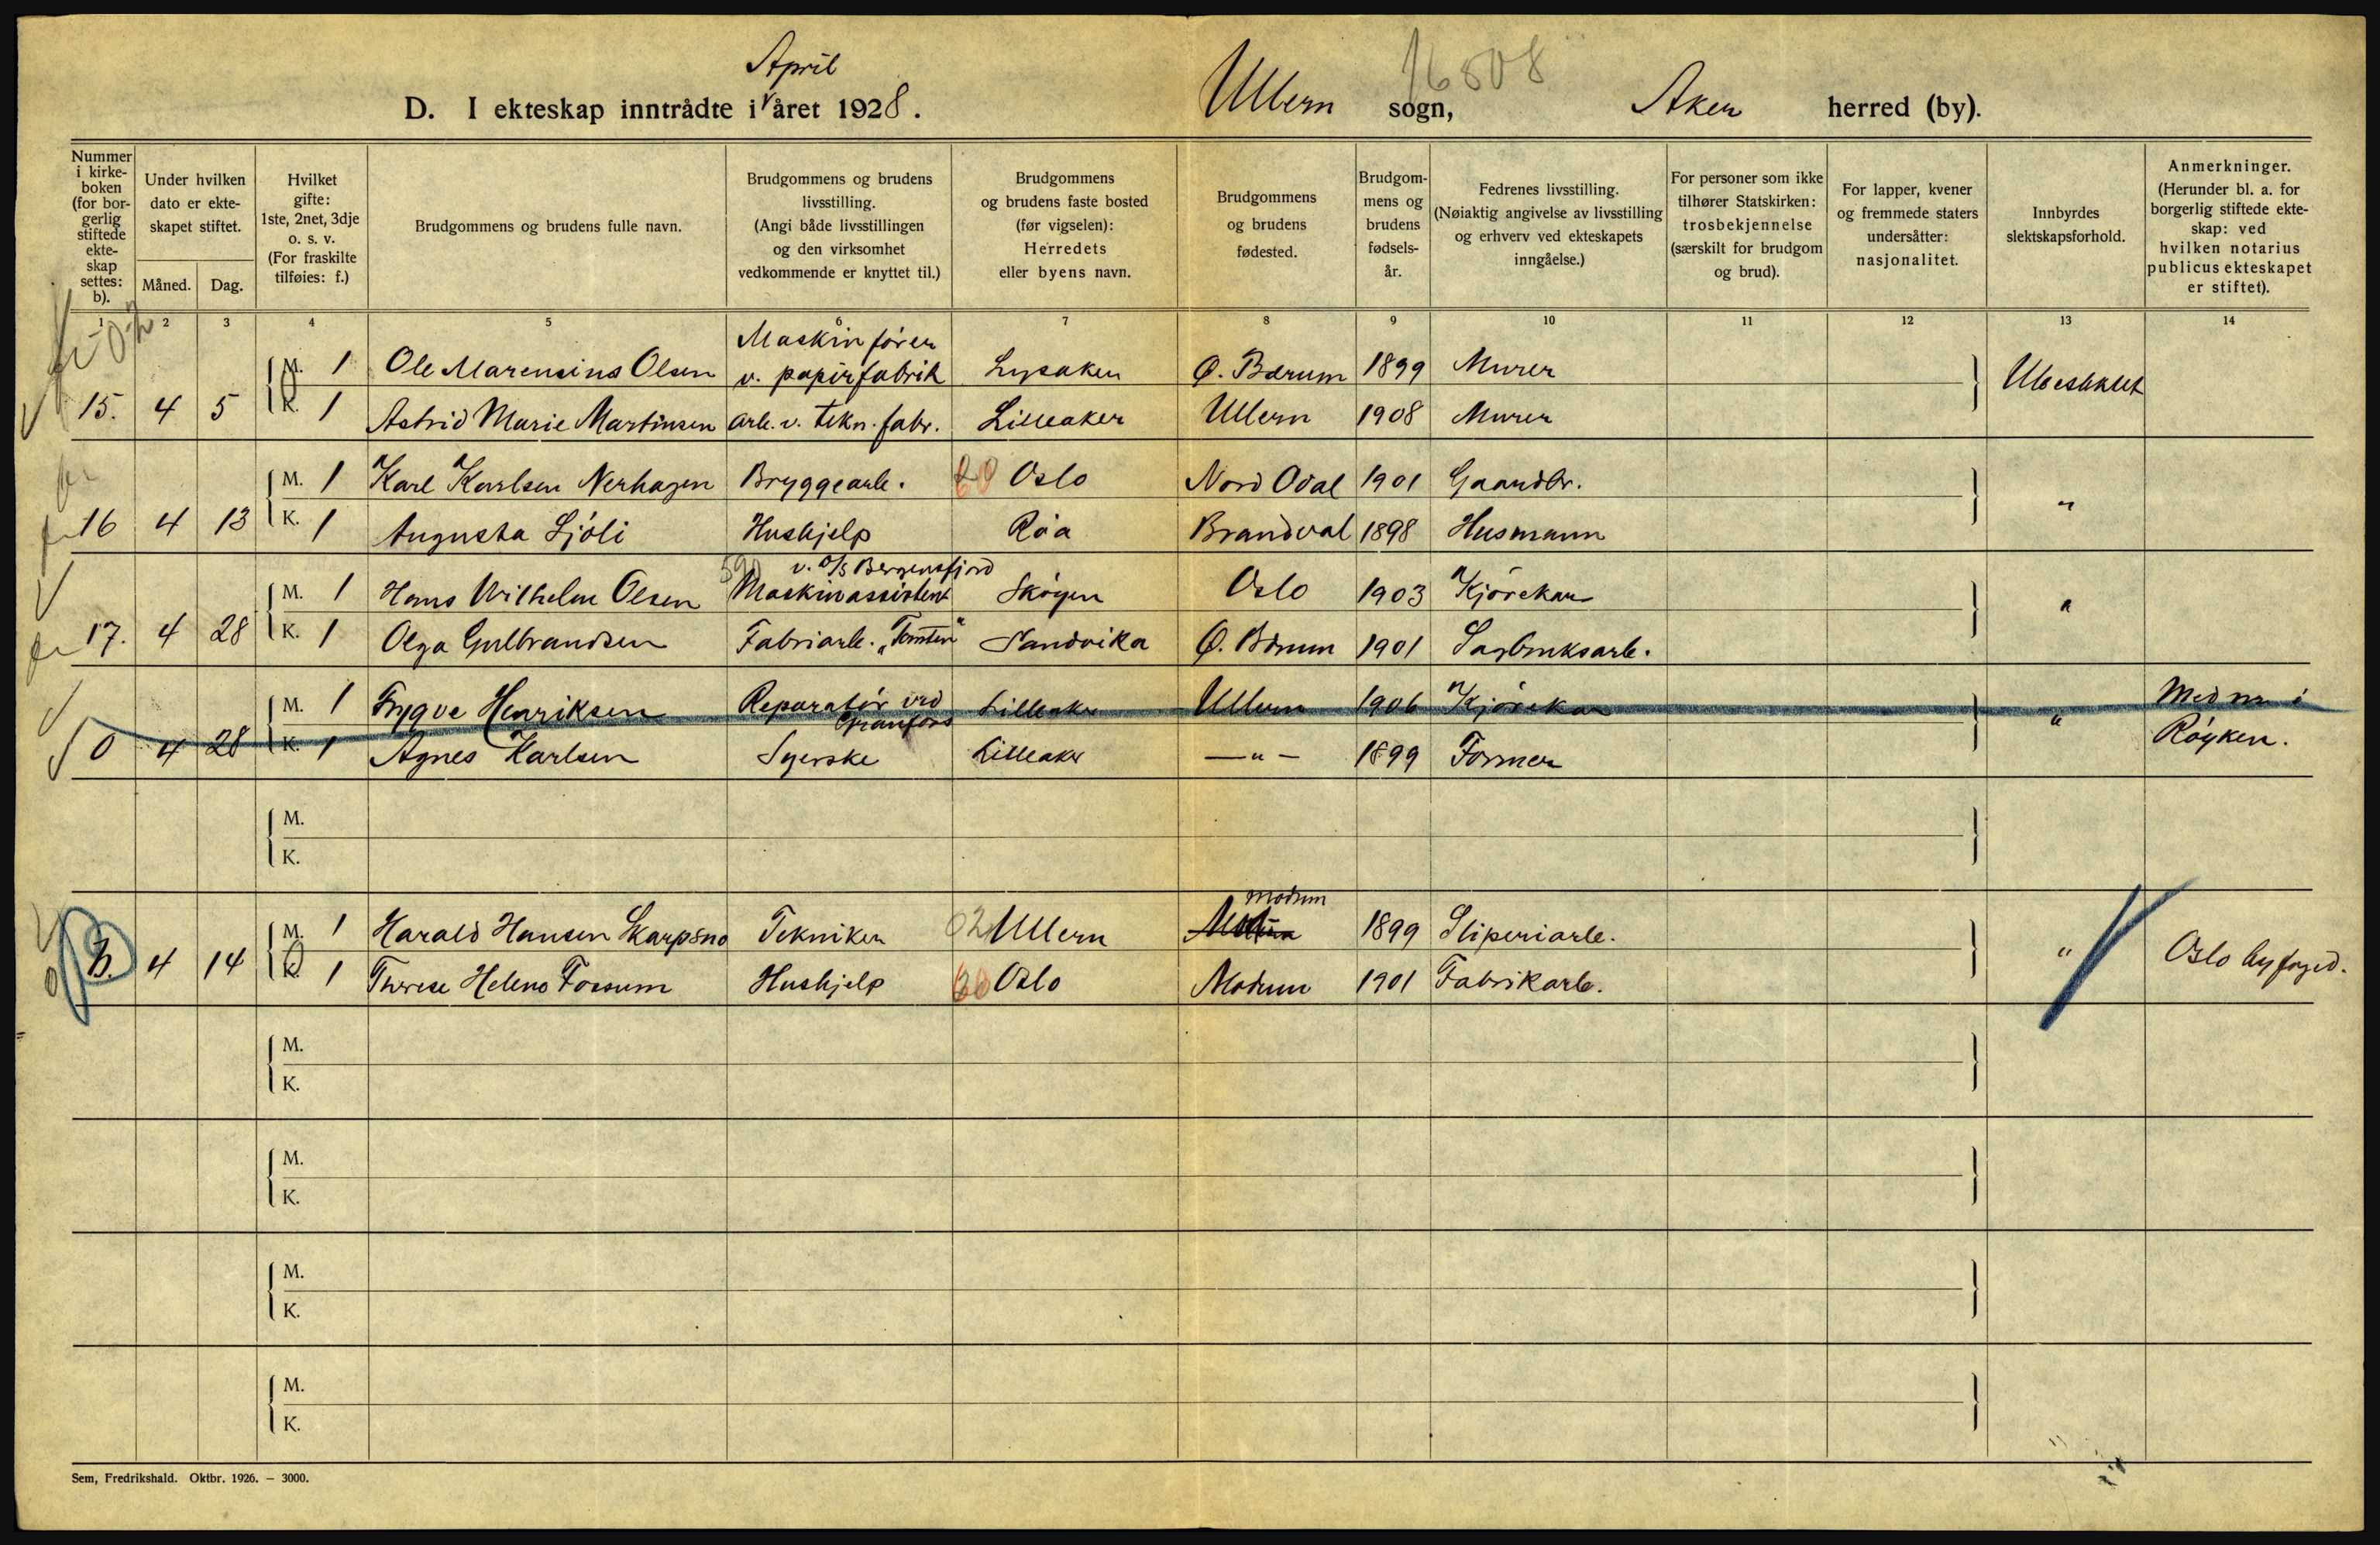 April
16808
D. I ekteskap inntrådte i året 1928.
Ullern sogn, Aker herred (by).
Nummer i kirke-boken (for bor-gerlig stiftede ekte-skap settes: b).
Under hvilken dato er ekte-skapet stiftet.
Måned. Dag.
Hvilket gifte: 1ste, 2net, 3dje o. s. v. (For fraskilte tilføies: f.)
Brudgommens og brudens fulle navn.
Brudgommens og brudens livsstilling. (Angi både livsstillingen og den virksomhet vedkommende er knyttet til.)
Brudgommens og brudens faste bosted (før vigselen): Herredets eller byens navn.
Brudgommens og brudens fødested.
Brudgom-mens og brudens fødsels-år.
Fedrenes livsstilling. (Nøiaktig angivelse av livsstilling og erhverv ved ekteskapets inngåelse.)
For personer som ikke tilhører Statskirken: trosbekjennelse (særskilt for brudgom og brud).
For lapper, kvener og fremmede staters undersåtter: nasjonalitet.
Innbyrdes slektskapsforhold.
Anmerkninger. (Herunder bl. a. for borgerlig stiftede ekte-skap: ved hvilken notarius publicus ekteskapet er stiftet).
1 2 3 4 5 6 7 8 9 10 11 12 13 14
Maskinfører
M. 1 Ole Marensius Olsen v. papirfabrik Lysaker Ø. Bærum 1899 Murer Ubeslektet
15. 4 5 K. 1 Astrid Marie Martinsen arb. v. tekn. fabr. Lilleaker Ullern 1908 Murer
M. 1 Karl Karlsen Nerhagen Bryggearb. Oslo Nord Odal 1901 Gaardbr. "
16 4 13 K. 1 Augusta Sjöli Hushjelp Röa Brandval 1898 Husmann
v. D/S Bergensfjord
M. 1 Hans Wilhelm Olsen Maskinassistent Skøyen Oslo 1903 Kjörekar "
17. 4 28 K. 1 Olga Gulbrandsen Fabriarb. Sandvika Ø. Bærum 1901 Sagbruksarb.
M. 1 Trygve Henriksen Reparatör ved Granfoss Lilleaker Ullern 1906 Kjörekar " Med nr i
0 4 28 K. 1 Agnes Karlsen Syerske Lilleaker — " — 1899 Former Röyken.
M.
K.
Modum
M. 1 Harald Hansen Skarpsno Tekniker 02 Ullern 1899 Sliperiarb. " Oslo byfoged.
b. 4 14 K. 1 Therese Helene Fossum Hushjelp Oslo Modum 1901 Fabrikarb.
M.
K.
M.
K.
M.
K.
M.
K.
Sem, Fredrikshald. Oktbr. 1926. – 3000.